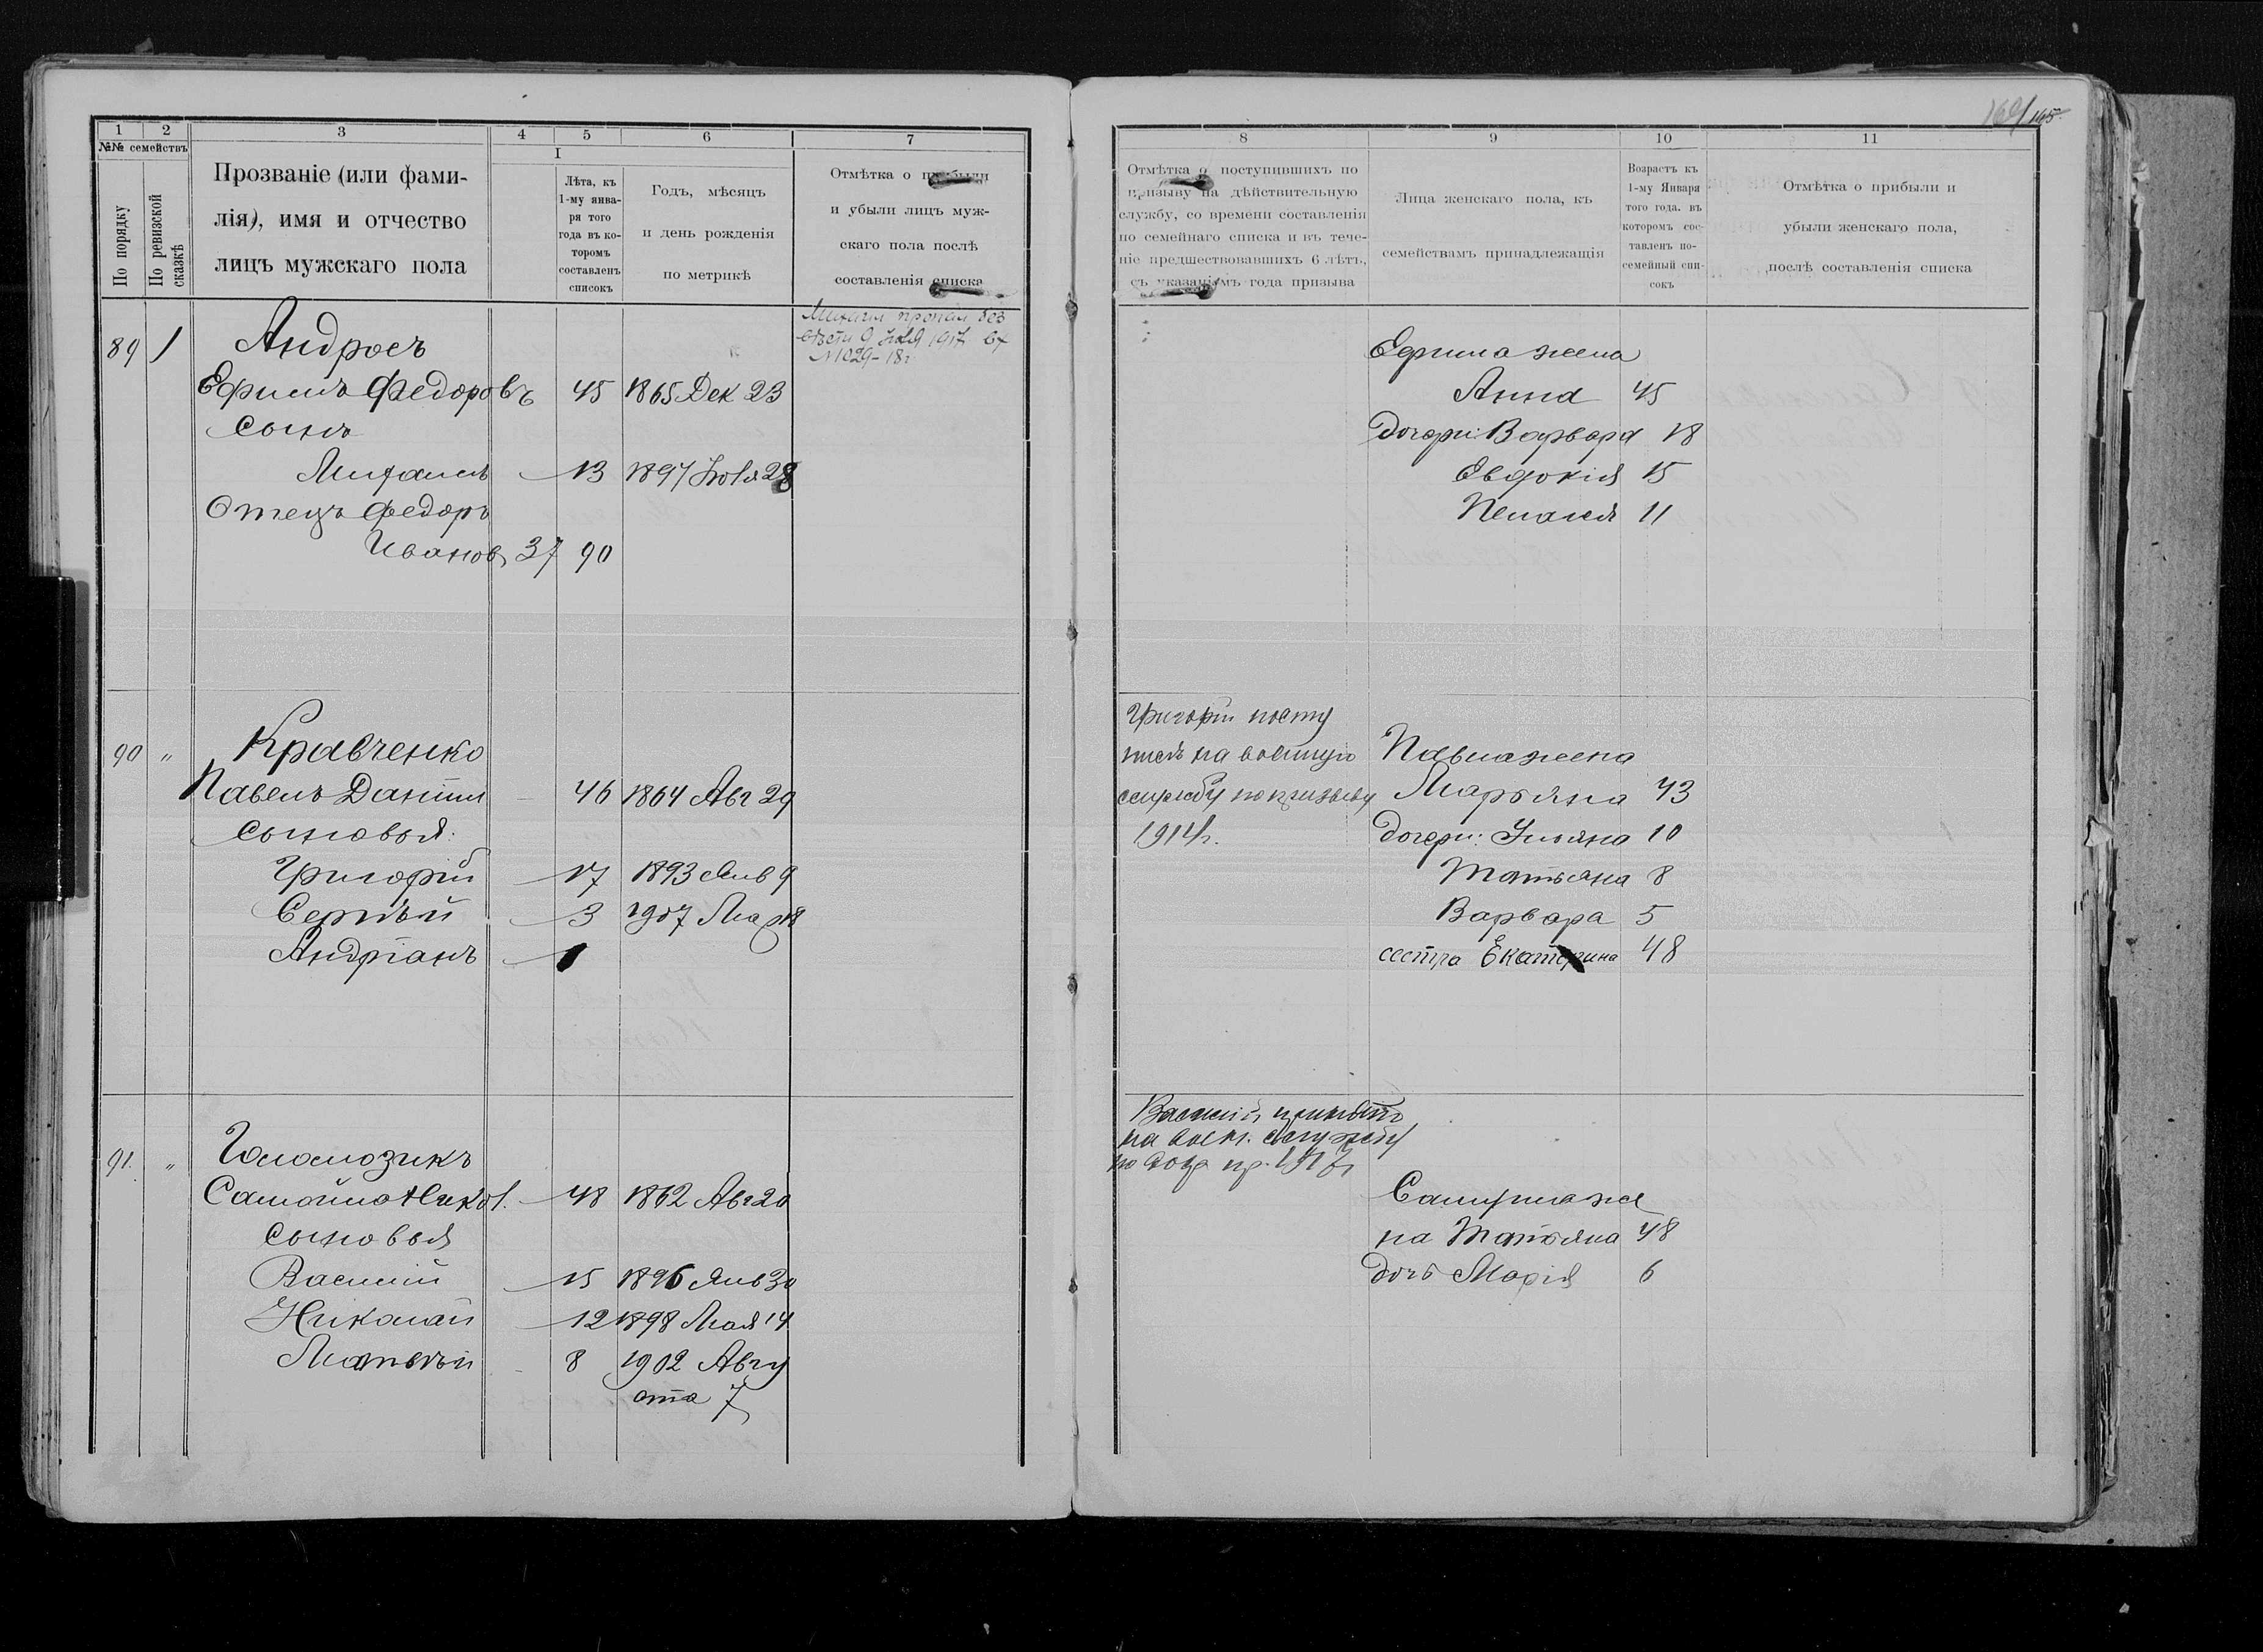 1 2 3 4 5 6 7
№№ семействъ
По порядку
По ревизской сказкѣ
Прозваніе (или фами-
лія), имя и отчество
лицъ мужскаго пола
I
Лѣта, къ
1-му янва-
ря того
года въ ко-
торомъ
составленъ
списокъ
Годъ, мѣсяцъ
и день рожденія
по метрикѣ
Отмѣтка о прибыли
и убыли лицъ муж-
скаго пола послѣ
составленія списка
Михаил пропал без
вѣсти 9 Ноя 1917 Вх
№1029-18г
89 1 Андросъ
Ефимъ Федоровъ 45 1865 Дек 23
Сынъ
Михаилъ 13 1897 Ноя 28
Отецъ Федоръ
Иванов 37 90
90 „ Кравченко
Павелъ Даніил 46 1864 Авг 29
Сыновья:
Григорій 17 1893 Янв 9
Сергѣй 3 1907 Мар 18
Андріанъ 1
91. „
Самойло Никол. 48 1862 Авг 20
Сыновья
Василій 15 1896 Янв 30
Николай 12 1898 Мая 14
Матвѣй 8 1902 Авгу
ста 7
165
8 9 10 11
Отмѣтка о поступившихъ по
призыву на дѣйствительную
службу, со времени составленія
по семейнаго списка и въ тече-
ніе предшествовавшихъ 6 лѣтъ,
съ указаніемъ года призыва
Лица женскаго пола, къ
семействамъ принадлежащія
Возрастъ къ
1-му Января
того года. въ
которомъ сос-
тавленъ по-
семейный спи-
сокъ
Отмѣтка о прибыли и
убыли женскаго пола,
послѣ составленія списка
Ефима жена
Анна 45
Дочери: Варвара 18
Евдокія 15
Пелагея 11
Григорій посту
пилъ на военную
службу по призыву
1914г.
Павла жена
Марьяна 43
дочери: Ульяна 10
Татьяна 8
Варвара 5
сестра Екатерина 48
Василій принятъ
на воен. службу
по пр.
Самуила же
на Татьяна 48
дочь Марія 6